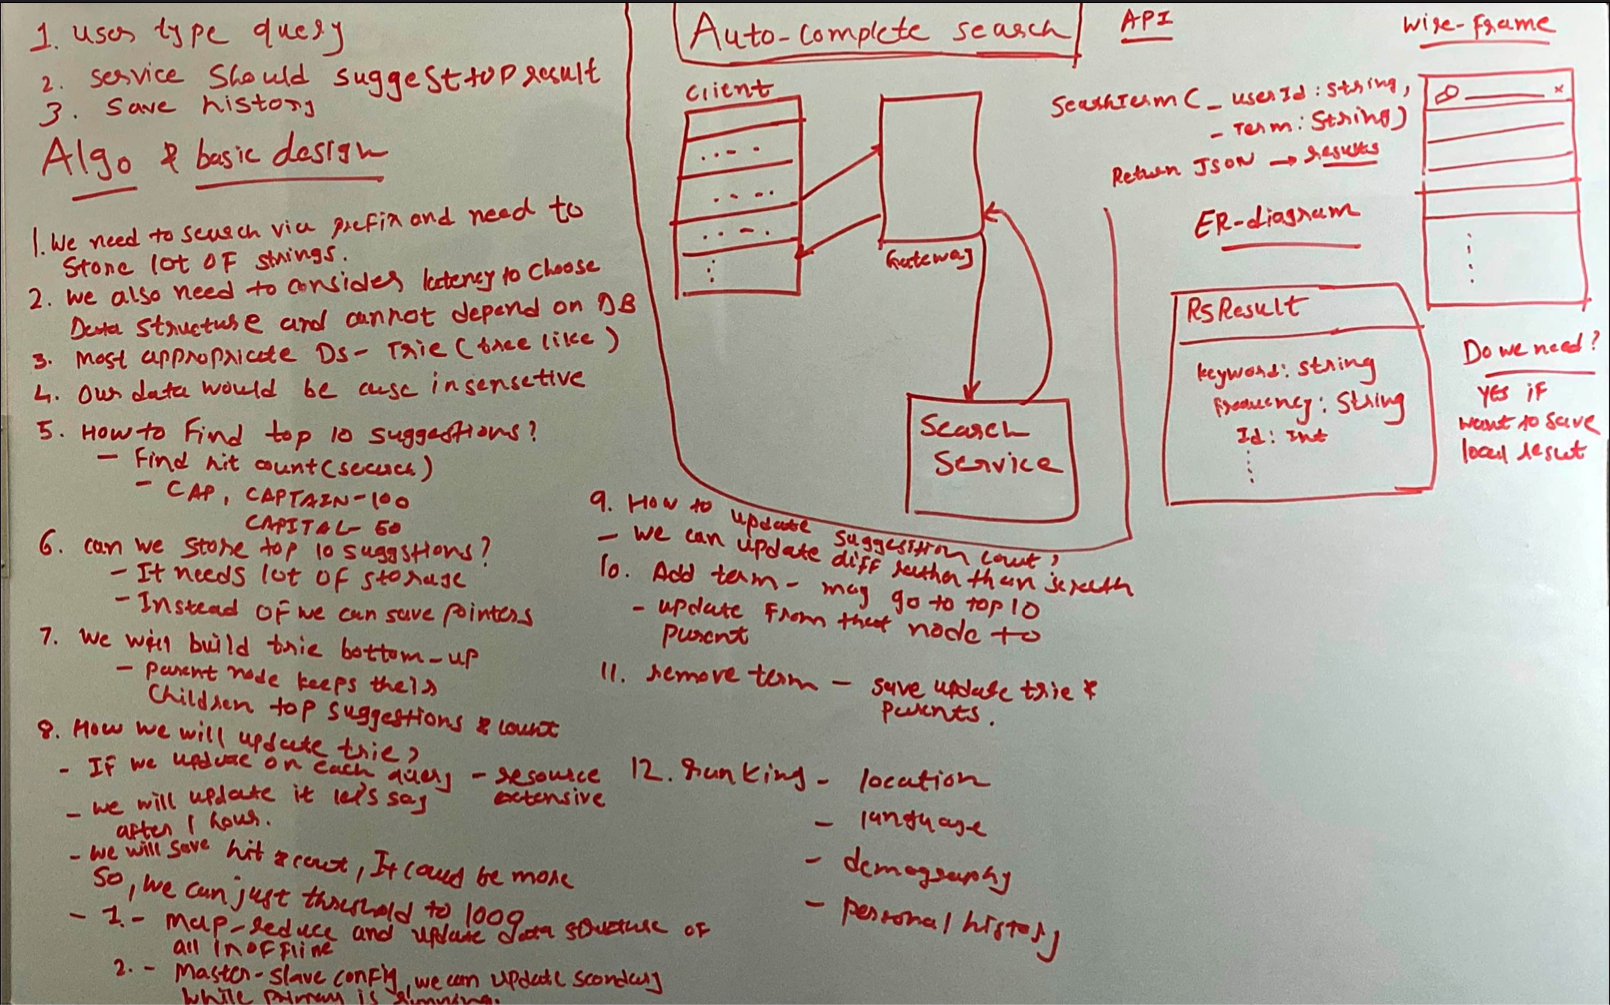 1. user type query
2. service should suggest top result
3. save history
Algo & basic design
1. We need to search via prefix and need to
store lot of strings.
2. we also need to consider latency to choose
Data structure and cannot depend on DB
3. most appropriate DS - Trie (tree like)
4. Our data would be case insensetive
5. How to find top 10 suggestions?
- Find hit count (search)
- CAP, CAPTAIN-100
CAPITAL- 50
6. can we store top 10 suggstions?
- It needs lot of storage
- Instead of we can save pointers
7. We will build trie bottom-up
- parent node keeps their
Children top suggestions & count
8. How we will update trie?
- If we update on each query - resource
extensive
- we will update it let's say
after 1 hour.
- we will save hit & count, It could be more
so, we can just threshold to 1000
- 1 - map-reduce and update data structure of
all in offline
2. - Master-slave config, we can update secondary
while primary is running.
Auto-complete search
client
Gateway
Search
Service
9. How to update suggestion count?
- we can update diff rather than scratch
10. Add term - may go to top 10
- update from that node to
parent
11. remove term - save update trie &
parents.
12. ranking - location
- language
- demography
- personal history
API
SearchTerm( - userId : String,
- Term : String)
Return JSON → results
ER-diagram
RSResult
Keyword: string
Frequency: String
Id: Int
wire-frame
x
Do we need?
yes if
want to save
local result